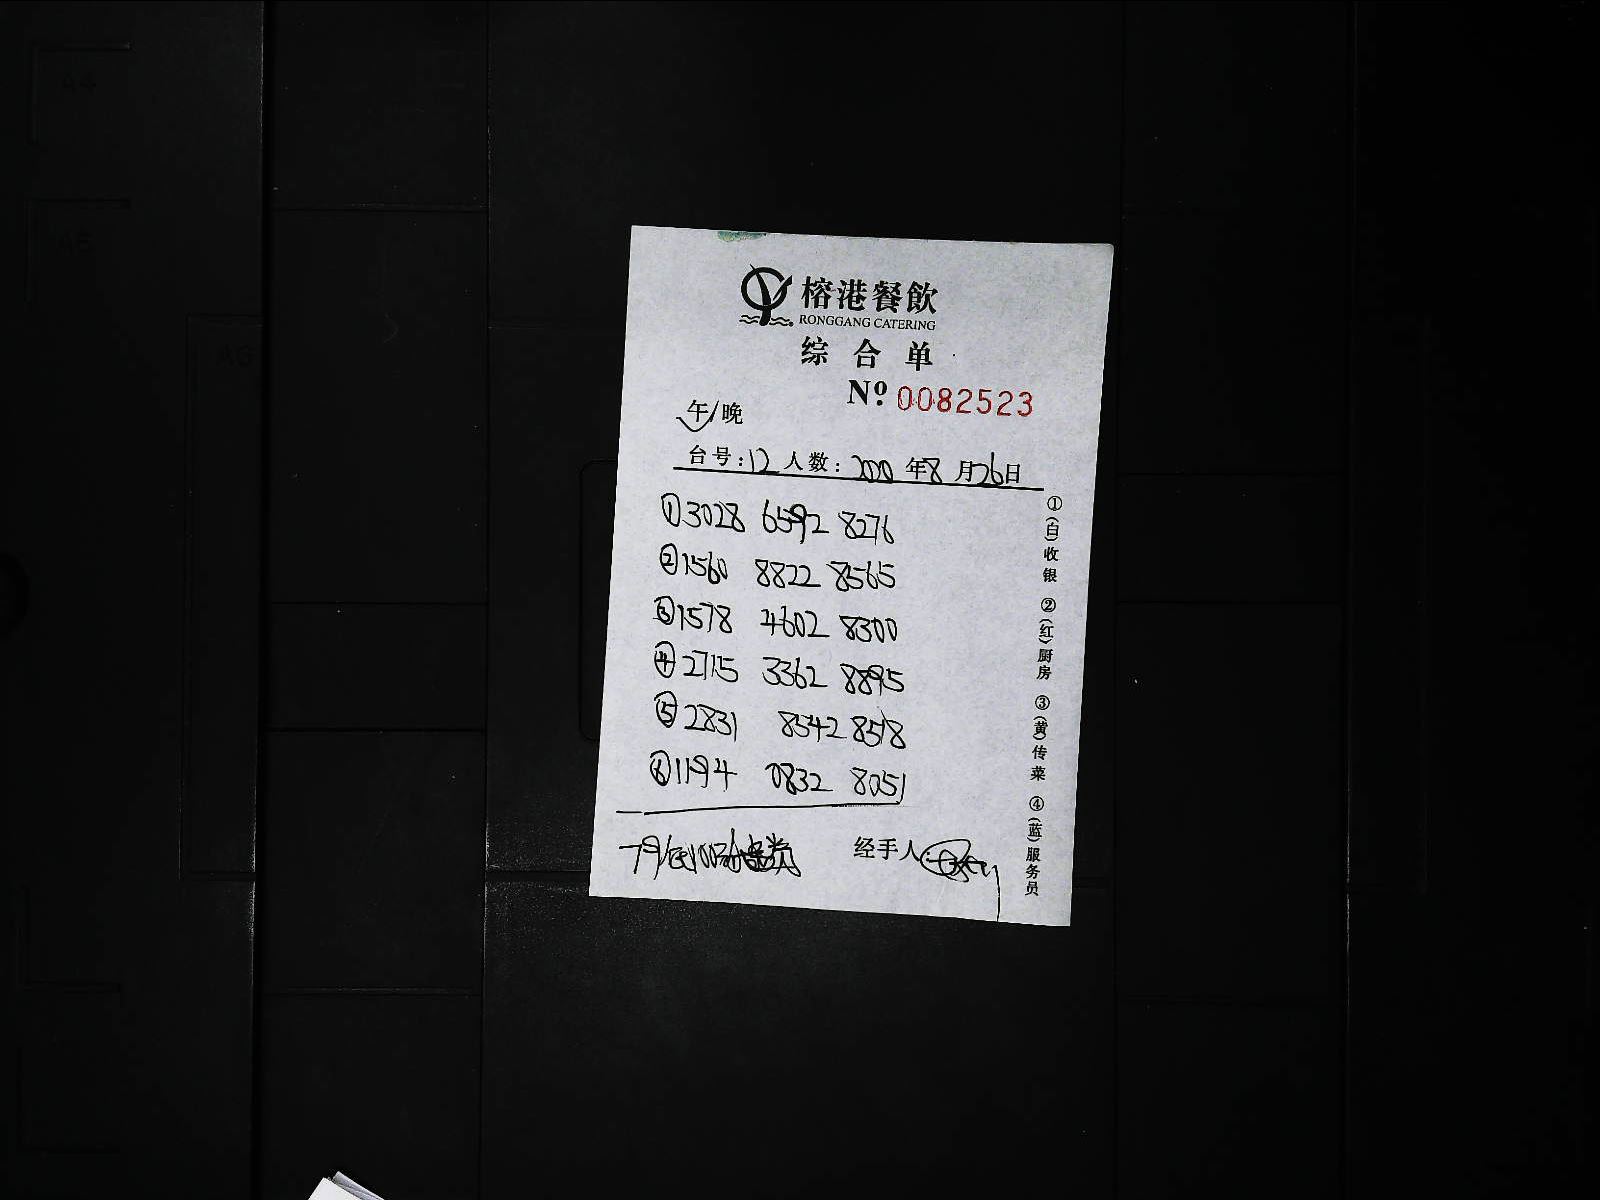 榕港餐飲
RONGGANG CATERING
综合单
Nº 0082523
午/晚
台号:12 人数: 2020 年8月26日
①3028 6592 8276
②1560 8822 8565
③1578 4602 8300
④2715 3362 8895
⑤2831 8542 8518
⑥1194 0832 8051
经手人:
①(白)收银 ②(红)厨房 ③(黄)传菜 ④(蓝)服务员
A4
A5